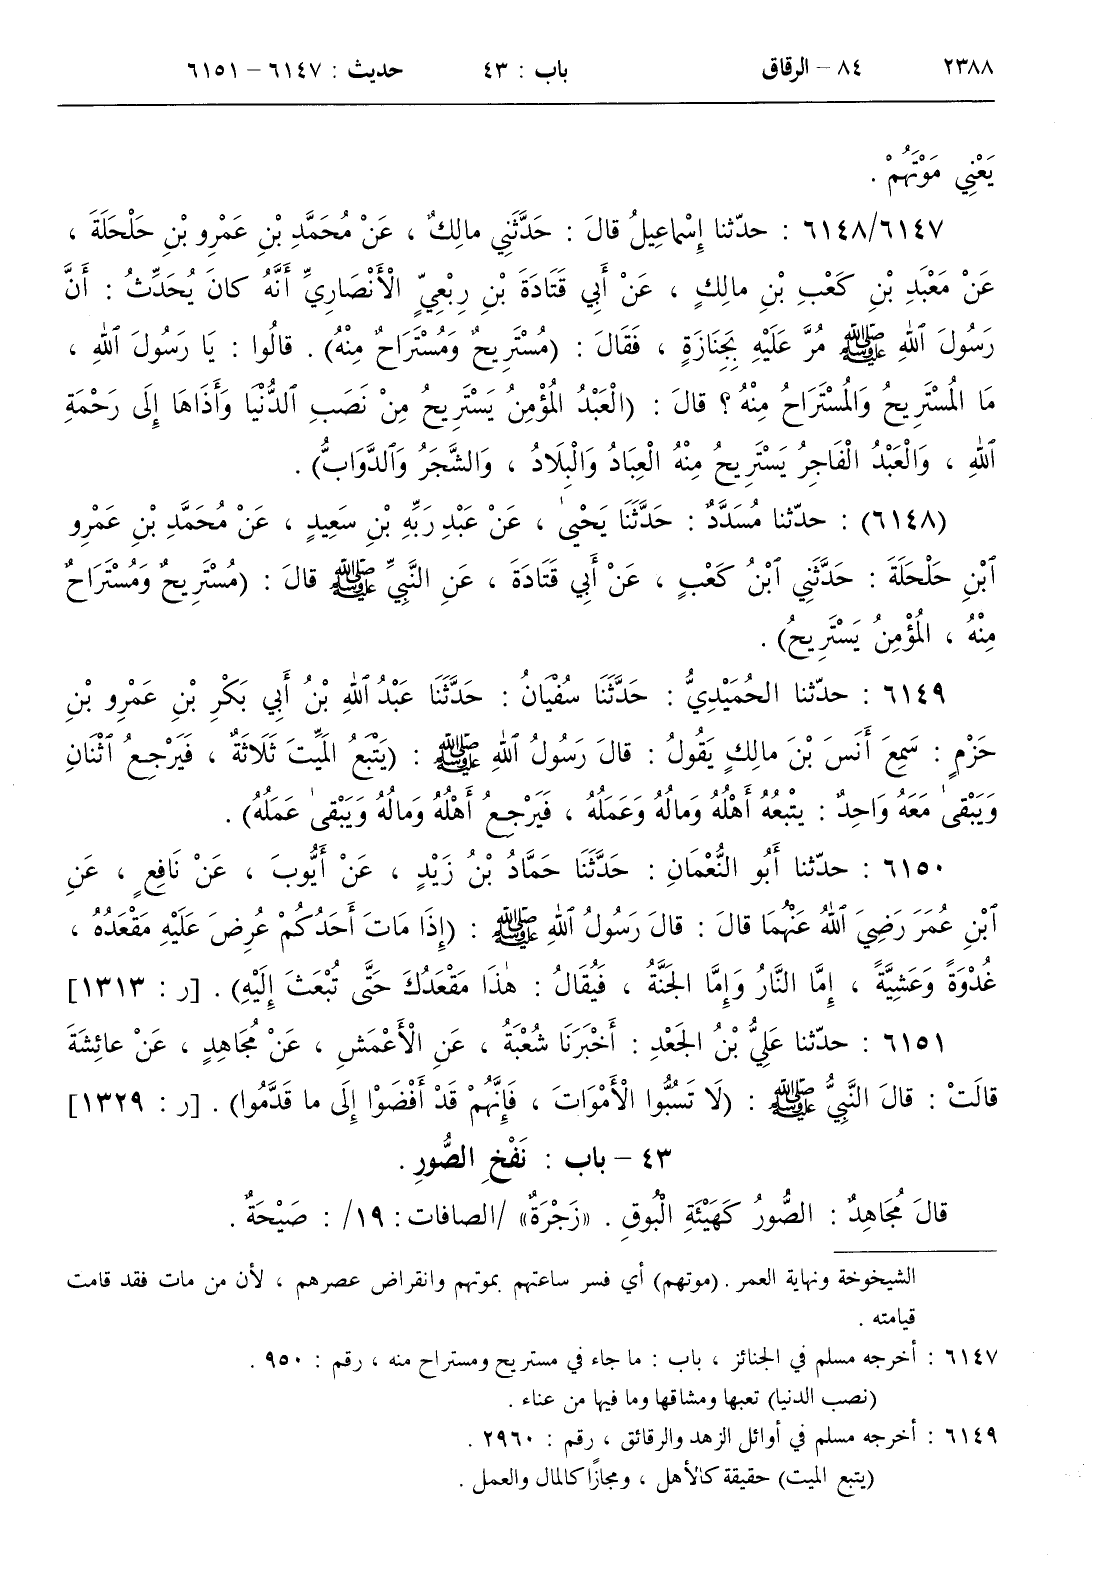 ٢٣٨٨ ٨٤ – الرقاق باب : ٤٣ حديث : ٦١٤٧ – ٦١٥١
يَعْنِي مَوْتَهُمْ .
٦١٤٨/٦١٤٧ : حدّثنا إِسْماعِيلُ قالَ : حَدَّثَنِي مالِكٌ ، عَنْ مُحَمَّدِ بْنِ عَمْرِو بْنِ حَلْحَلَةَ ،
عَنْ مَعْبَدِ بْنِ كَعْبِ بْنِ مالِكٍ ، عَنْ أَبِي قَتَادَةَ بْنِ رِبْعِيٍّ الْأَنْصَارِيِّ أَنَّهُ كانَ يُحَدِّثُ : أَنَّ
رَسُولَ ٱللهِ ﷺ مُرَّ عَلَيْهِ بِجَنَازَةٍ ، فَقَالَ : (مُسْتَرِيحٌ وَمُسْتَرَاحٌ مِنْهُ) . قالُوا : يَا رَسُولَ ٱللهِ ،
مَا المُسْتَرِيحُ وَالمُسْتَرَاحُ مِنْهُ ؟ قالَ : (الْعَبْدُ المُؤْمِنُ يَسْتَرِيحُ مِنْ نَصَبِ ٱلدُّنْيَا وَأَذَاهَا إِلَى رَحْمَةِ
ٱللهِ ، وَالْعَبْدُ الْفَاجِرُ يَسْتَرِيحُ مِنْهُ الْعِبَادُ وَالْبِلَادُ ، وَالشَّجَرُ وَٱلدَّوَابُّ) .
(٦١٤٨) : حدّثنا مُسَدَّدٌ : حَدَّثَنَا يَحْيىٰ ، عَنْ عَبْدِ رَبِّهِ بْنِ سَعِيدٍ ، عَنْ مُحَمَّدِ بْنِ عَمْرِو
ٱبْنِ حَلْحَلَةَ : حَدَّثَنِي ٱبْنُ كَعْبٍ ، عَنْ أَبِي قَتَادَةَ ، عَنِ النَّبِيِّ ﷺ قالَ : (مُسْتَرِيحٌ وَمُسْتَرَاحٌ
مِنْهُ ، المُؤْمِنُ يَسْتَرِيحُ) .
٦١٤٩ : حدّثنا الحُمَيْدِيُّ : حَدَّثَنَا سُفْيَانُ : حَدَّثَنَا عَبْدُ ٱللهِ بْنُ أَبِي بَكْرِ بْنِ عَمْرِو بْنِ
حَزْمٍ : سَمِعَ أَنَسَ بْنَ مالِكٍ يَقُولُ : قالَ رَسُولُ ٱللهِ ﷺ : (يَتْبَعُ المَيِّتَ ثَلَاثَةٌ ، فَيَرْجِعُ ٱثْنَانِ
وَيَبْقىٰ مَعَهُ وَاحِدٌ : يَتْبَعُهُ أَهْلُهُ وَمالُهُ وَعَمَلُهُ ، فَيَرْجِعُ أَهْلُهُ وَمالُهُ وَيَبْقىٰ عَمَلُهُ) .
٦١٥٠ : حدّثنا أَبُو النُّعْمَانِ : حَدَّثَنَا حَمَّادُ بْنُ زَيْدٍ ، عَنْ أَيُّوبَ ، عَنْ نَافِعٍ ، عَنِ
ٱبْنِ عُمَرَ رَضِيَ ٱللهُ عَنْهُمَا قالَ : قالَ رَسُولُ ٱللهِ ﷺ : (إِذَا مَاتَ أَحَدُكُمْ عُرِضَ عَلَيْهِ مَقْعَدُهُ ،
غُدْوَةً وَعَشِيَّةً ، إِمَّا النَّارُ وَإِمَّا الجَنَّةُ ، فَيُقَالُ : هٰذَا مَقْعَدُكَ حَتَّى تُبْعَثَ إِلَيْهِ) . [ر : ١٣١٣]
٦١٥١ : حدّثنا عَلِيُّ بْنُ الجَعْدِ : أَخْبَرَنَا شُعْبَةُ ، عَنِ الْأَعْمَشِ ، عَنْ مُجَاهِدٍ ، عَنْ عائِشَةَ
قالَتْ : قالَ النَّبِيُّ ﷺ : (لَا تَسُبُّوا الْأَمْوَاتَ ، فَإِنَّهُمْ قَدْ أَفْضَوْا إِلَى ما قَدَّمُوا) . [ر : ١٣٢٩]
٤٣ – باب : نَفْخِ الصُّورِ .
قالَ مُجَاهِدٌ : الصُّورُ كَهَيْئَةِ الْبُوقِ . «زَجْرَةٌ» /الصافات : ١٩/ : صَيْحَةٌ .
الشيخوخة ونهاية العمر . (موتهم) أي فسر ساعتهم بموتهم وانقراض عصرهم ، لأن من مات فقد قامت
قيامته .
٦١٤٧ : أخرجه مسلم في الجنائز ، باب : ما جاء في مستريح ومستراح منه ، رقم : ٩٥٠ .
(نصب الدنيا) تعبها ومشاقها وما فيها من عناء .
٦١٤٩ : أخرجه مسلم في أوائل الزهد والرقائق ، رقم : ٢٩٦٠ .
(يتبع الميت) حقيقة كالأهل ، ومجازًا كالمال والعمل .